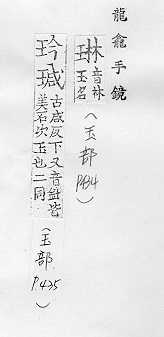 龍龕手鏡
琳 音林 玉名
（玉部 P.434）
玪 瑊 古咸反下又音針皆
美石次玉也二同
（玉部 P.435）